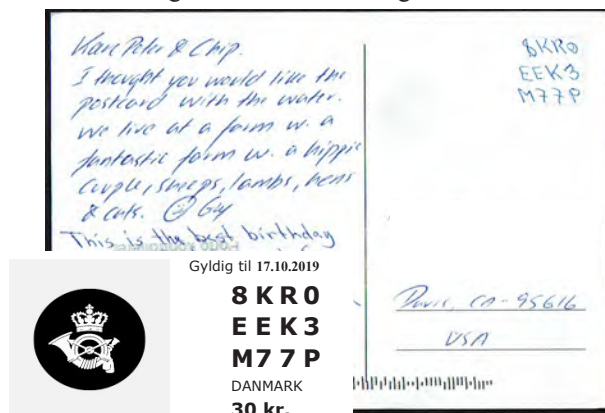 Kære Peter & Chip.
I thought you would like the
postcard with the water.
We live at a farm w. a
fantastic farm w. a hippie
couple, sheeps, lambs, hens
& cats. Guy
This is the best birthday
8KR0
EEK3
M77P
Davis, CA-95616
USA
Gyldig til 17.10.2019
8KR0
EEK3
M77P
DANMARK
30 kr.